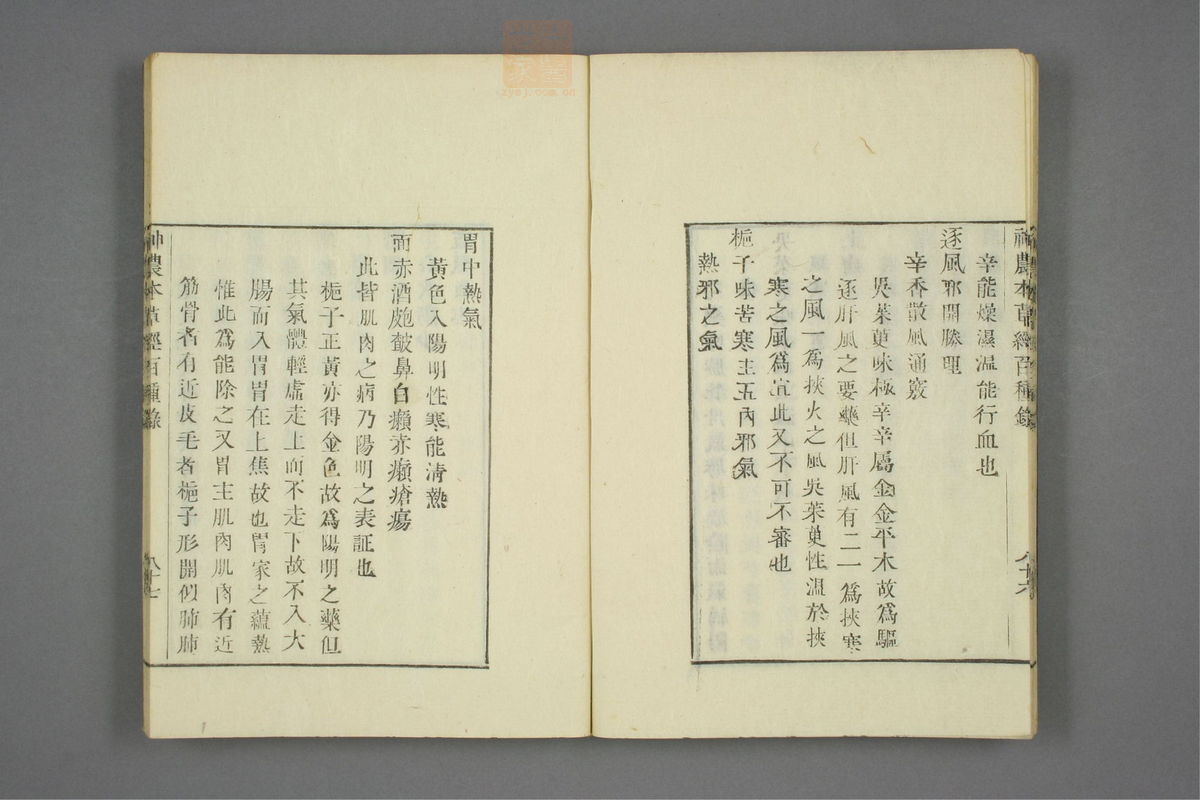 神農本草經百種錄
八十六
辛能燥濕温能行血也
逐風邪開腠理
辛香散風通竅
吳茱萸味極辛辛屬金金平木故爲驅
逐肝風之要藥但肝風有二一爲挾寒
之風一爲挾火之風吳茱萸性温於挾
寒之風爲宜此又不可不審也
梔子味苦寒主五內邪氣
熱邪之氣
胃中熱氣
黃色入陽明性寒能淸熱
面赤酒皰皶鼻白癩赤癩瘡瘍
此皆肌肉之病乃陽明之表証也
梔子正黃亦得金色故爲陽明之藥但
其氣體輕虛走上而不走下故不入大
腸而入胃胃在上焦故也胃家之蘊熱
惟此爲能除之又胃主肌肉肌肉有近
筋骨者有近皮毛者梔子形開似肺肺
神農本草經百種錄
八十七
zysj.com.cn